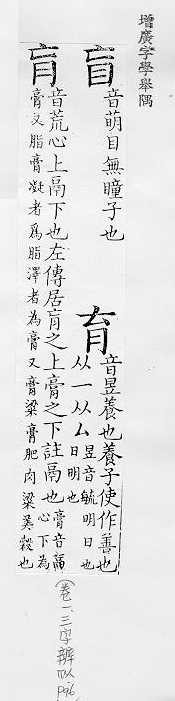 增廣字學舉隅
盲
音萌目無瞳子也
育
音昱養也養子使作善也
从一从厶
昱音毓明日也
日明也
肓
音荒心上鬲下也左傳居肓之上膏之下註鬲也
膏音隔
心下為
膏又脂膏凝者爲脂澤者為膏又膏粱膏肥肉粱美穀也
卷一、三字辨似 P96